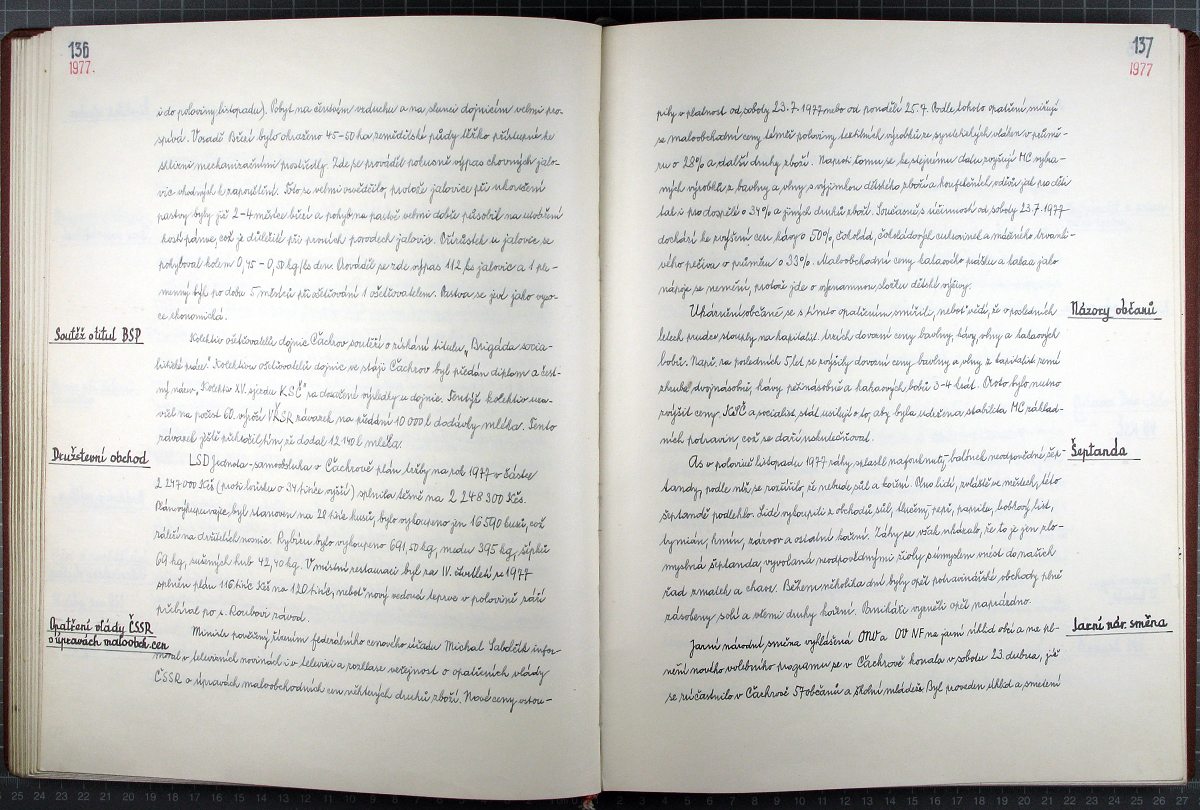 136
1977.
i do poloviny listopadu). Pobyt na čerstvém vzduchu a na slunci dojnicím velmi pro-
spívá. V osadě Březí bylo ohrazeno 45-50 ha zemědělské půdy těžko přístupné ke
sklizni mechanizačními prostředky. Zde se prováděl pokusně výpas chovných jalo-
vic vhodných k zapouštění. Toto se velmi osvědčilo, protože jalovice při ukončení
pastvy byly již 2-4 měsíce březí a pohyb na pastvě velmi dobře působil na utváření
kosti pánve, což je důležité při prvních porodech jalovic. Přírůstek u jalovic se
pohyboval kolem 0,45 - 0,50 kg/ks den. Prováděl se zde výpas 112 ks jalovic a 1 ple-
menný býk po dobu 5 měsíců při ošetřování 1 ošetřovatelem. Pastva se jeví jako vyso-
ce ekonomická.
Soutěž o titul BSP
Kolektiv ošetřovatelů dojnic Čachrov soutěží o získání titulu „Brigáda socia-
listické práce." Kolektivu ošetřovatelů dojnic ve stáji Čachrov byl předán diplom a čest-
ný název „Kolektiv XV. sjezdu KSČ" za dosažené výsledky u dojnic. Tentýž kolektiv uza-
vřel na počest 60. výročí VŘSR závazek na předání 10 000 l dodávky mléka. Tento
závazek ještě překročil tím, že dodal 12 140 l mléka.
Družstevní obchod
LSD Jednota - samoobsluha v Čachrově plán tržby na rok 1977 v částce
2 247 000 Kčs (proti loňsku o 34 tisíce vyšší) splnila těsně na 2 248 300 Kčs.
Plán výkupu vajec, byl stanoven na 28 tisíc kusů, bylo vykoupeno jen 16 590 kusů, což
záleží na držitelích nosnic. Rybízu bylo vykoupeno 691,50 kg, medu 395 kg, šípků
69 kg, sušených hub 42,40 kg. V místní restauraci byl za IV. čtvrtletí r. 1977
splněn plán 116 tisíc Kčs na 120 tisíc, neboť nový vedoucí teprve v polovině září
přebíral po s. Roubovi závod.
Opatření vlády ČSSR
o úpravách maloobch. cen
Ministr pověřený řízením federálního cenového úřadu Michal Sabolčík infor-
moval v televizních novinách i v televizi a rozhlase veřejnost o opatřeních vlády
ČSSR o úpravách maloobchodních cen některých druhů zboží. Nové ceny vstou-
137
1977
pily v platnost od soboty 23.7.1977 nebo od pondělí 25.7. Podle tohoto opatření snižují
se maloobchodní ceny téměř poloviny textilních výrobků ze syntetických vláken v průmě-
ru o 28% a další druhy zboží. Naproti tomu se ke stejnému datu zvyšují MC vybra-
ných výrobků z bavlny a vlny s výjimkou dětského zboží a konfekčních oděvů jak pro děti
tak i pro dospělé o 34% a jiných druhů zboží. Současně s účinností od soboty 23.7.1977
dochází ke zvýšení cen kávy o 50%, čokolád, čokoládových cukrovinek a máčeného trvanli-
vého pečiva v průměru o 33%. Maloobchodní ceny kakaového prášku a kakaa jako
nápoje se nemění, protože jde o významnou složku dětské výživy.
Názory občanů
Uvědomělí občané se s tímto opatřením smířili, neboť vědí, že v posledních
letech prudce stouply na kapitalist. trzích dovozní ceny bavlny, kávy, vlny a kakaových
bobů. Např. za posledních 5 let se zvýšily dovozní ceny bavlny a vlny z kapitalist. zemí
zhruba dvojnásobně, kávy pětinásobně a kakaových bobů 3-4 krát. Proto bylo nutno
zvýšit ceny. KSČ a socialist. stát usilují o to, aby byla udržena stabilita MC základ-
ních potravin, což se daří uskutečňovat.
Šeptanda
As v polovině listopadu 1977 rázy splaskl nafouknutý balónek neodpovědné šep-
tandy, podle níž se rozšířilo, že nebude sůl a koření. Plno lidí, zvláště ve městech, této
šeptandě podlehlo. Lidé vykoupili z obchodů sůl, tlučený pepř, papriku, bobkový list,
tymián, kmín, zázvor a ostatní koření. Záhy se však ukázalo, že to je jen zlo-
myslná šeptanda, vyvolaná neodpovědnými živly s úmyslem vnést do našich
řad zmatek a chaos. Během několika dní byly opět potravinářské obchody plně
zásobeny solí a všemi druhy koření. Panikáři vyzněli opět naprázdno.
Jarní nár. směna
Jarní národní směna vyhlášená ONV a OV NF na jarní úklid obcí a na pl-
nění nového volebního programu se v Čachrově konala v sobotu 23. dubna, jíž
se zúčastnilo v Čachrově 57 občanů a školní mládeže. Byl proveden úklid a smetení